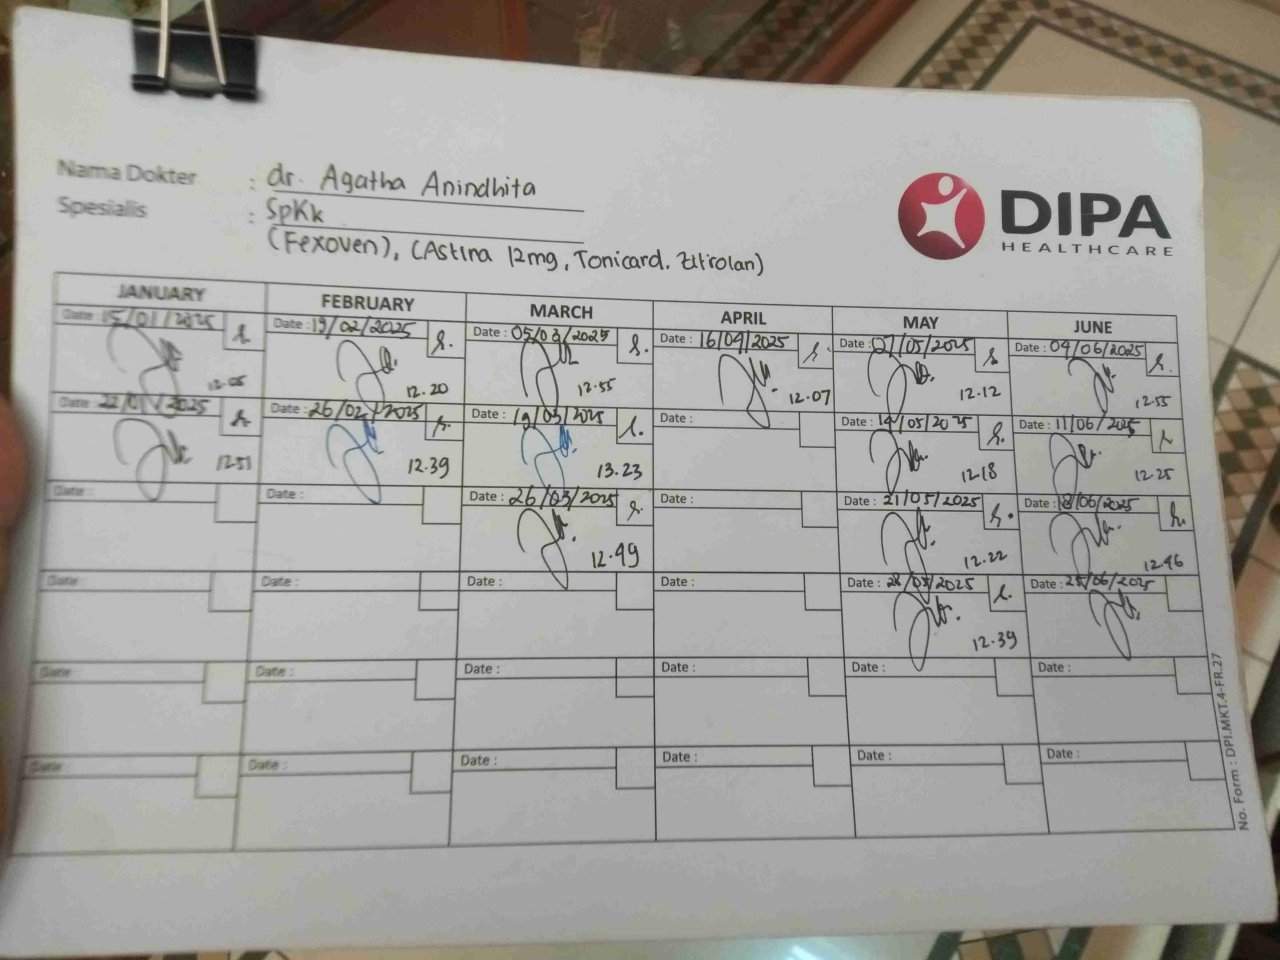 Nama Dokter : dr. Agatha Anindhita
Spesialis : SpKk
(Fexoven), (Astina 12mg, Tonicard, Zitrolan)
DIPA
HEALTHCARE
JANUARY FEBRUARY MARCH APRIL MAY JUNE
Date : 15/01/2025 Date : 19/02/2025 Date : 05/03/2025 Date : 16/04/2025 Date : 07/05/2025 Date : 04/06/2025
12.05 12.20 12.55 12.07 12.12 12.55
Date : 22/01/2025 Date : 26/02/2025 Date : 19/03/2025 Date : Date : 14/05/2025 Date : 11/06/2025
12.51 12.39 13.23 12.18 12.25
Date : Date : Date : 26/03/2025 Date : Date : 21/05/2025 Date : 18/06/2025
12.49 12.22 12.46
Date : Date : Date : Date : Date : 28/05/2025 Date : 25/06/2025
12.39
Date : Date : Date : Date : Date : Date :
Date : Date : Date : Date : Date : Date :
No. Form : DPI.MKT.4-FR.27